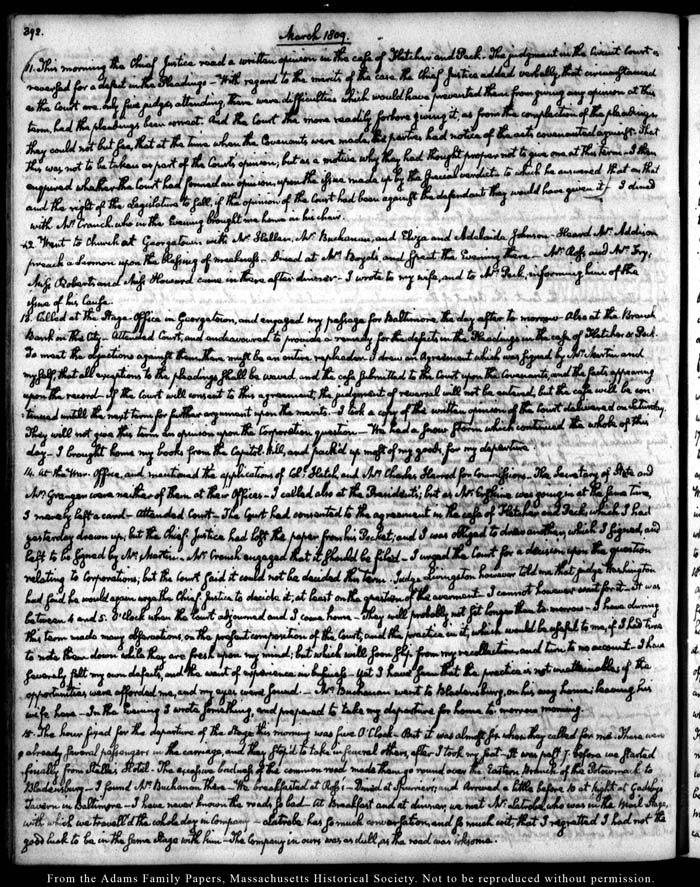 392.
March 1809.
11. This morning the Chief Justice read a written opinion in the case of Fletcher and Peck. The judgment in the Circuit Court is
reversed for a defect in the Pleadings — With regard to the merits of the case the Chief Justice added verbally, that circumstanced
as the Court are, only five judges attending, there were difficulties which would have prevented them from giving any opinion at this
term, had the pleadings been correct. And the Court the more readily forbore giving it, as from the complection of the pleadings,
they could not but see, that at the time when the Covenants were made, the parties had notice of the acts covenanted against: That
this was not to be taken as part of the Court's opinion; but as a motive why they had thought proper not to give one at this term — I then
enquired whether the Court had formed an opinion, upon the Issue made up by the special verdict: to which he answered that on that
and the right of the Legislature to sell, if the opinion of the Court had been against the defendant they would have given it. I dined
with Mr. Cranch, who in the Evening brought me home in his chair.
12. Went to Church at Georgetown with Mr. Hellen, Mr. Buchanan, and Eliza and Adelaide Johnson — Heard Mr. Addison
preach a Sermon upon the blessing of meekness — Dined at Mr. Boyd's, and spent the Evening there — Mr. Ross, and Mr. Fry,
Miss Roberts and Miss Howard came in there after dinner — I wrote to my wife, and to Mr. Peck, informing him of the
issue of his Cause.
13. Called at the Stage-Office in Georgetown, and engaged my passage for Baltimore, the day after to-morrow. Also at the Branch
Bank in this City — Attended Court, and endeavoured to provide a remedy for the defects in the Pleadings in the case of Fletcher & Peck.
To meet the objections against them there must be an entire repleader. I drew an Agreement which was signed by Mr. Martin, and
myself, that all exceptions to the pleadings shall be waved, and the case submitted to the Court upon the Covenants, and the facts appearing
upon the record — If the Court will consent to this agreement, the judgment of reversal will not be entered, but the case will be con-
tinued until the next term for further argument upon the merits — I took a copy of the written opinion of the Court delivered on Saturday.
They will not give this term an opinion upon the Corporation question — We had a snow storm which continued the whole of this
day — I brought home my books from the Capitol-hill, and pack'd up most of my goods, for my departure.
14. At the War Office, and mentioned the applications of Coll. Hatch, and Mr. Charles Harrod for Commissions — The Secretary of State and
Mr. Granger were neither of them at their Offices — I called also at the President's; but as Mr. Erskine was going in at the same time,
I merely left a card — Attended Court — The Court had consented to the agreement in the case of Fletcher and Peck, which I had
yesterday drawn up; but the Chief Justice had lost the paper from his Pocket; and I was obliged to draw another, which I signed, and
left to be signed by Mr. Martin — Mr. Cranch engaged that it should be filed — I urged the Court for a decision upon the question
relating to Corporations; but the Court said it could not be decided this term — Judge Livingston however told me that judge Washington
had said he would again urge the Chief Justice to decide it; at least on the question of the averment — I cannot however wait for it — It was
between 4 and 5. O'Clock when the Court adjourned and I came home — They will probably not sit longer than to-morrow — I have during
this term made many observations, on the present composition of the Court, and the practice in it, which would be useful to me, if I had time
to note them down while they are fresh upon my mind; but which will soon slip from my recollection, and turn to no account — I have
severely felt my own defects, and the want of experience in business — Yet I have seen that the practice is not unattainable, if the
opportunities were afforded me, and my eyes were sound. — Mr. Buchanan went to Bladensburg, on his way home; leaving his
wife here — In the Evening I wrote something, and prepared to take my departure for home to-morrow morning.
15. The hour fixed for the departure of the Stage this morning was five O'Clock — But it was almost six when they called for me. There were
already several passengers in the carriage, and they stop'd to take in several others, after I took my seat — It was past 7. before we started
finally from Stelle's Hotel — The excessive badness of the common road made them go round over the Eastern Branch of the Potowmack to
Bladensburg — I found Mr. Buchanan there — We breakfasted at Ross's — Dined at Spurriers, and arrived a little before 10 at night at Gadsby's
Tavern in Baltimore — I have never known the roads so bad — At Breakfast and at dinner, we met Mr. Latrobe, who was in the Mail Stage,
with which we travell'd the whole day in company — Latrobe has so much conversation, and so much wit, that I regretted I had not the
good luck to be in the same stage with him — The Company in ours was as dull, as the road was irksome.
From the Adams Family Papers, Massachusetts Historical Society. Not to be reproduced without permission.